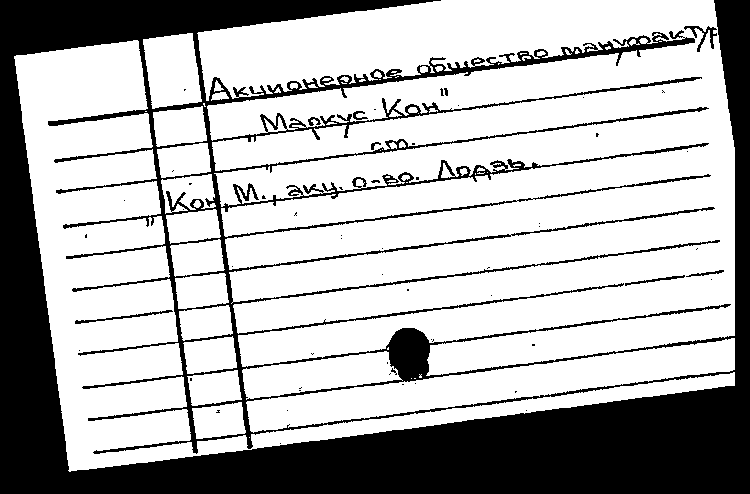 Акционерное общество мануфактур
„Маркус Кон"
„ ст.
„Кон, М., акц. о-во. Лодзь.